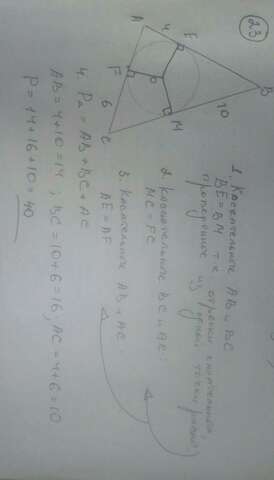 23
A
4
E
B
F
O
6
M
10
C
1. Касательные AB и BC
BE = BM т.к. отрезки касательных,
проведённые из одной точки равны
2. Касательные BC и AC:
MC = FC
3. Касательные AB и AC
AE = AF
4. P = AB + BC + AC
AB = 4 + 10 = 14; BC = 10 + 6 = 16; AC = 4 + 6 = 10
P = 14 + 16 + 10 = 40